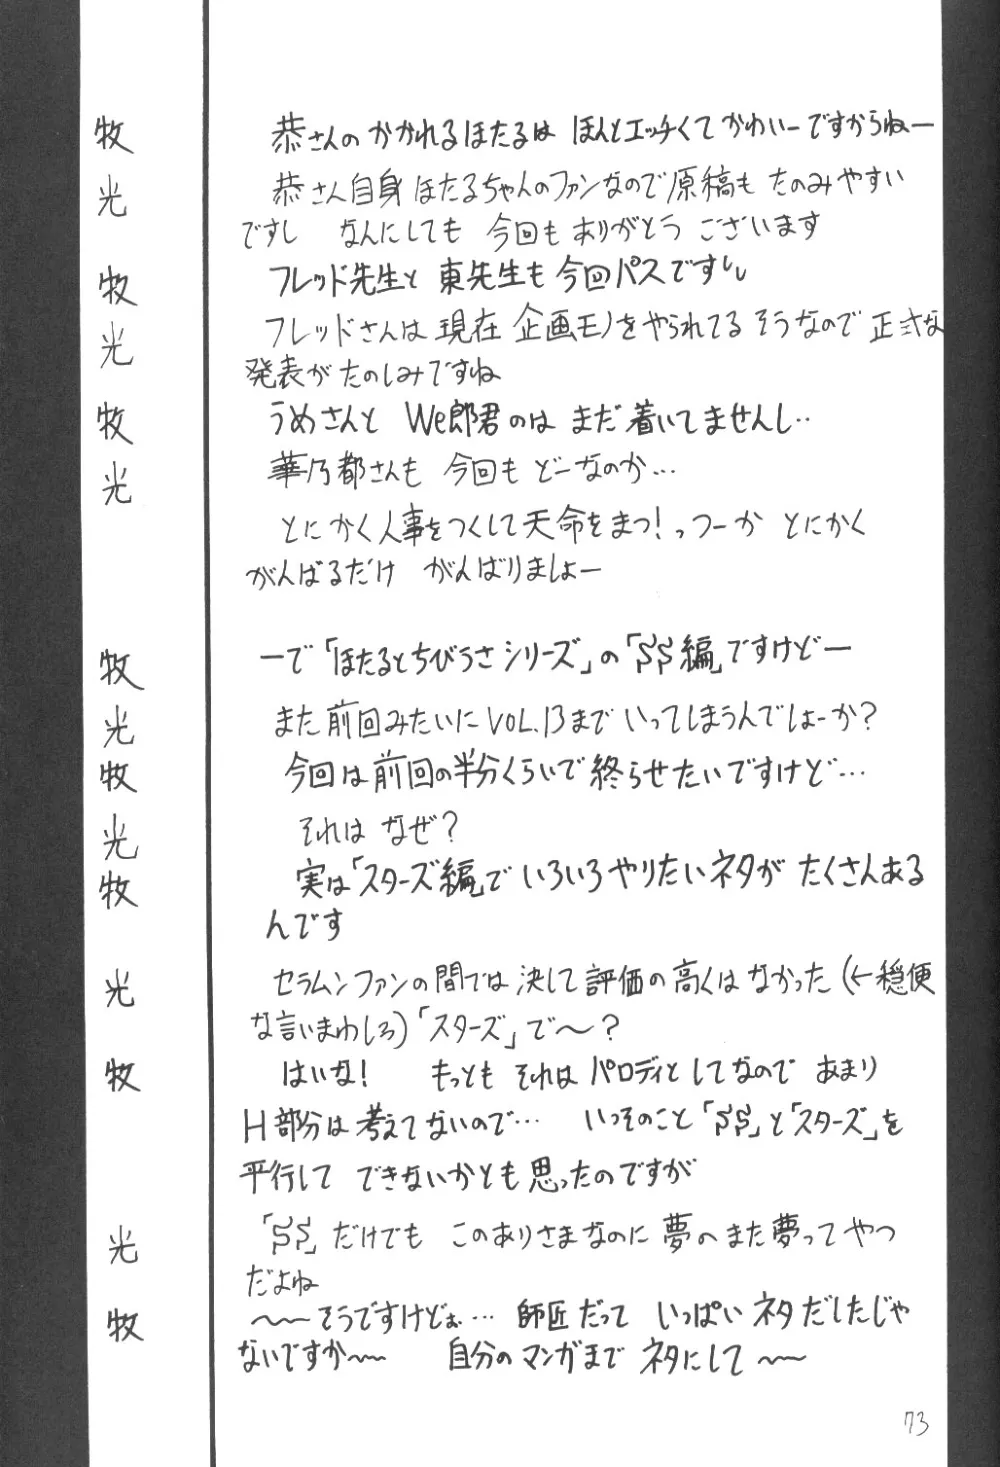 牧 恭さんのかかれるほたるは ほんとエッチくてかわいーですからねー
光 恭さん自身ほたるちゃんのファンなので原稿も たのみやすい
ですし なんにしても 今回もありがとう ございます
牧 フレッド先生と 東先生も今回パスですし
光 フレッドさんは現在 企画モノをやられてるそうなので正式な
発表がたのしみですね
牧 うめさんと We郎君のは まだ着いてませんし‥
光 華乃都さんも 今回も どーなのか…
とにかく人事をつくして天命をまつ!っつーか とにかく
がんばるだけ がんばりましょー
牧 ーで「ほたるとちびうさシリーズ」の「SS編」ですけどー
光 また前回みたいにVOL.13までいってしまうんでしょーか?
牧 今回は前回の半分くらいで終らせたいですけど…
光 それは なぜ?
牧 実は「スターズ編」でいろいろやりたいネタが たくさんある
んです
光 セラムンファンの間では決して評価の高くはなかった(←穏便
な言いまわしろ)「スターズ」で〜?
牧 はいな! もっとも それはパロディとしてなので あまり
H部分は考えてないので… いっそのこと「SS」と「スターズ」を
平行して できないかとも思ったのですが
光 「SS」だけでも このありさまなのに夢のまた夢ってやつ
だよね
牧 〜〜そうですけどぉ… 師匠だって いっぱいネタだしたじゃ
ないですか〜〜 自分のマンガまで ネタにして〜〜
73